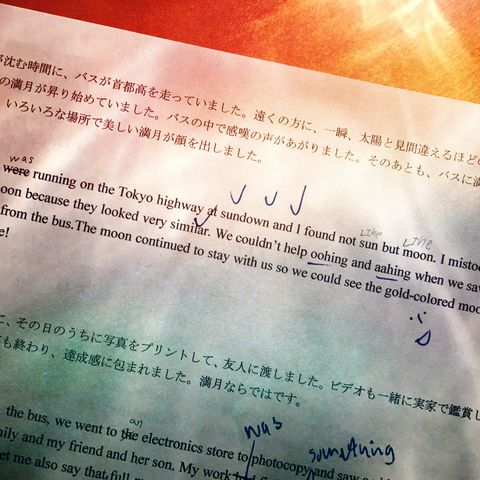 が沈む時間に、バスが首都高を走っていました。遠くの方に、一瞬、太陽と見間違えるほどの
の満月が昇り始めていました。バスの中で感嘆の声があがりました。そのあとも、バスに満
いろいろな場所で美しい満月が顔を出しました。
was
were running on the Tokyo highway at sundown and I found not sun but moon. I mistoo
LIKE
oon because they looked very similar. We couldn't help oohing and aahing when we saw
from the bus.The moon continued to stay with us so we could see the gold-colored moo
e!
に、その日のうちに写真をプリントして、友人に渡しました。ビデオも一緒に実家で鑑賞し
も終わり、達成感に包まれました。満月ならではです。
an was
the bus, we went to the electronics store to photocopy and saw a
something
mily and my friend and her son. My work
et me also say that full